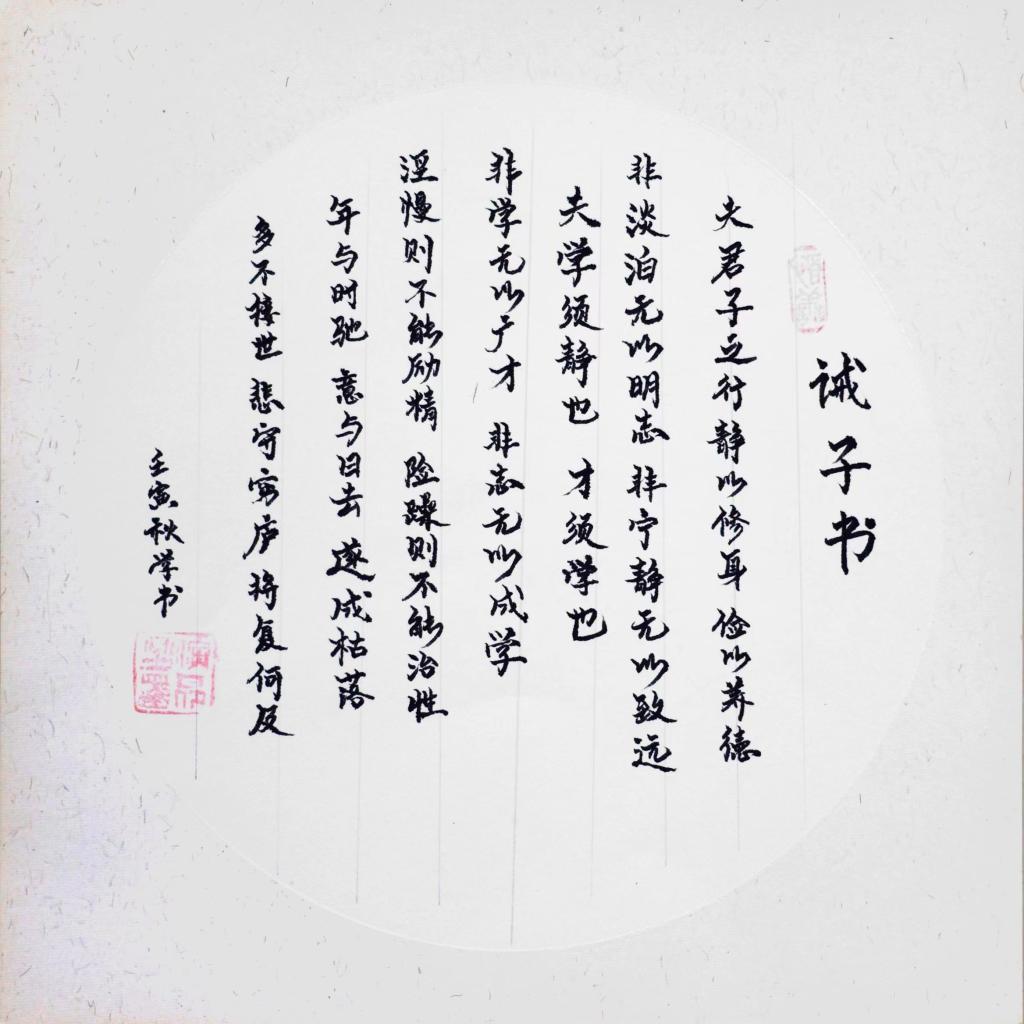 诫子书
夫君子之行静以修身 俭以养德
非淡泊无以明志 非宁静无以致远
夫学须静也 才须学也
非学无以广才 非志无以成学
淫慢则不能励精 险躁则不能治性
年与时驰 意与日去 遂成枯落
多不接世 悲守穷庐 将复何及
壬寅秋学书